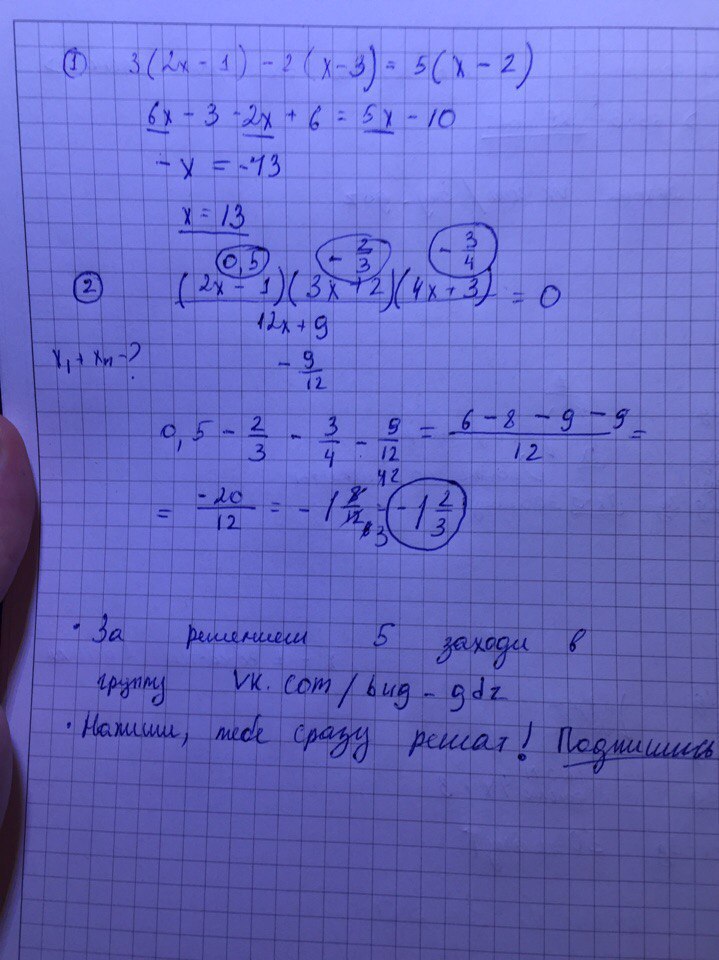 ① 3(2x - 1) - 2(x - 3) = 5(x - 2)
6x - 3 - 2x + 6 = 5x - 10
-x = -13
x = 13
0,5 - 2/3 - 3/4
② (2x - 1)(3x + 2)(4x + 3) = 0
12x + 9
x₁ + xₙ - ?
- 9/12
0,5 - 2/3 - 3/4 - 9/12 = (6 - 8 - 9 - 9)/12 =
= -20/12 = -1 8/12 -1 2/3
• За решением 5 заходи в
группу vk.com/bug-gdz
• Напиши, тебе сразу решат! Подпишись